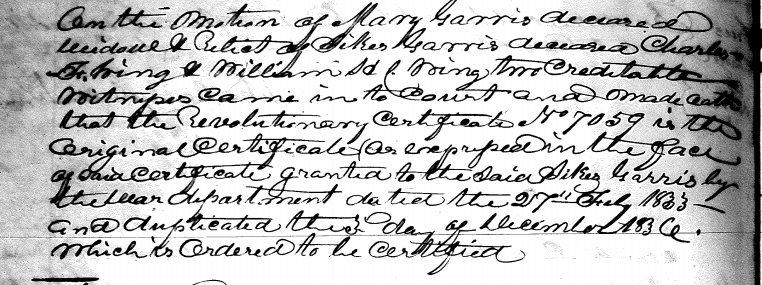 On the Motion of Mary Garris deceased
widow & Relict of Sikes Garris deceased Charles
F. Wing & William H C Wing two Creditable
Witnesses came in to Court and made oath
that the Revolutionary Certificate No 7059 is the
original Certificate (as expressed in the face
of said certificate granted to the said Sikes Garris by
the War department dated the 27th Feby 1833 —
and duplicated the 3 day of December 1836.
Which is Ordered to be Certified